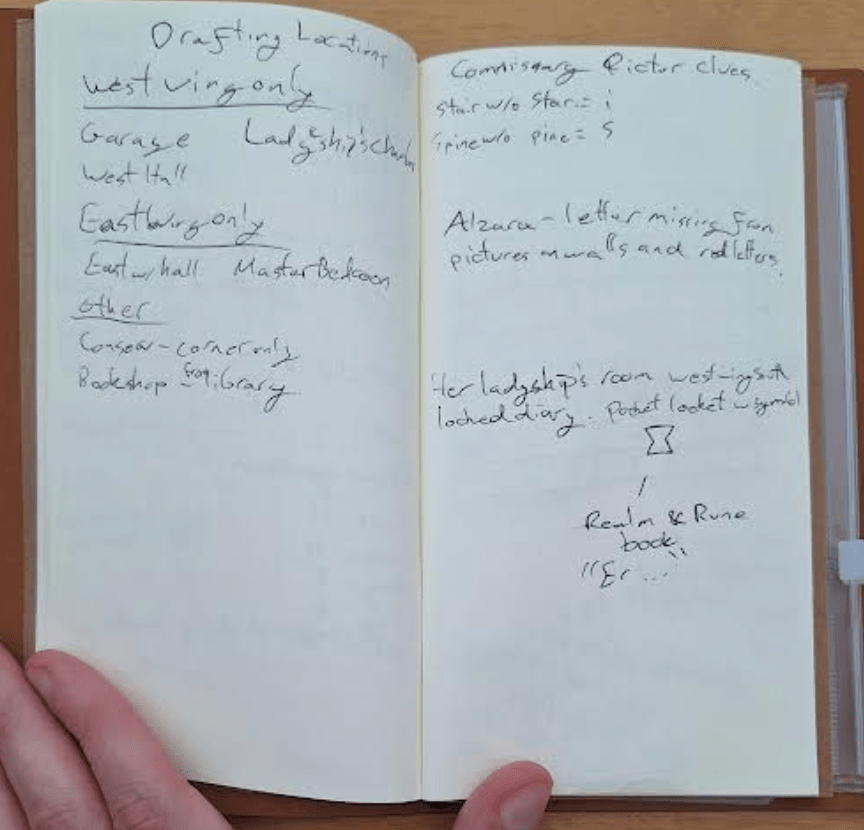 Drafting Locations
West wing only
Garage Ladyship's Chamber
West Hall
East wing only
East w/hall Master Bedroom
Other
Conserv - corner only
Bookshop - from library
Commisary Pictur clues
Stair w/o Star = i
Spine w/o pine = S
Alzara - letter missing from
pictures on walls and red letters.
Her ladyship's room west wing
locked diary. Pocket locket w symbol
/
Realm & Rune
book
"Er ..."